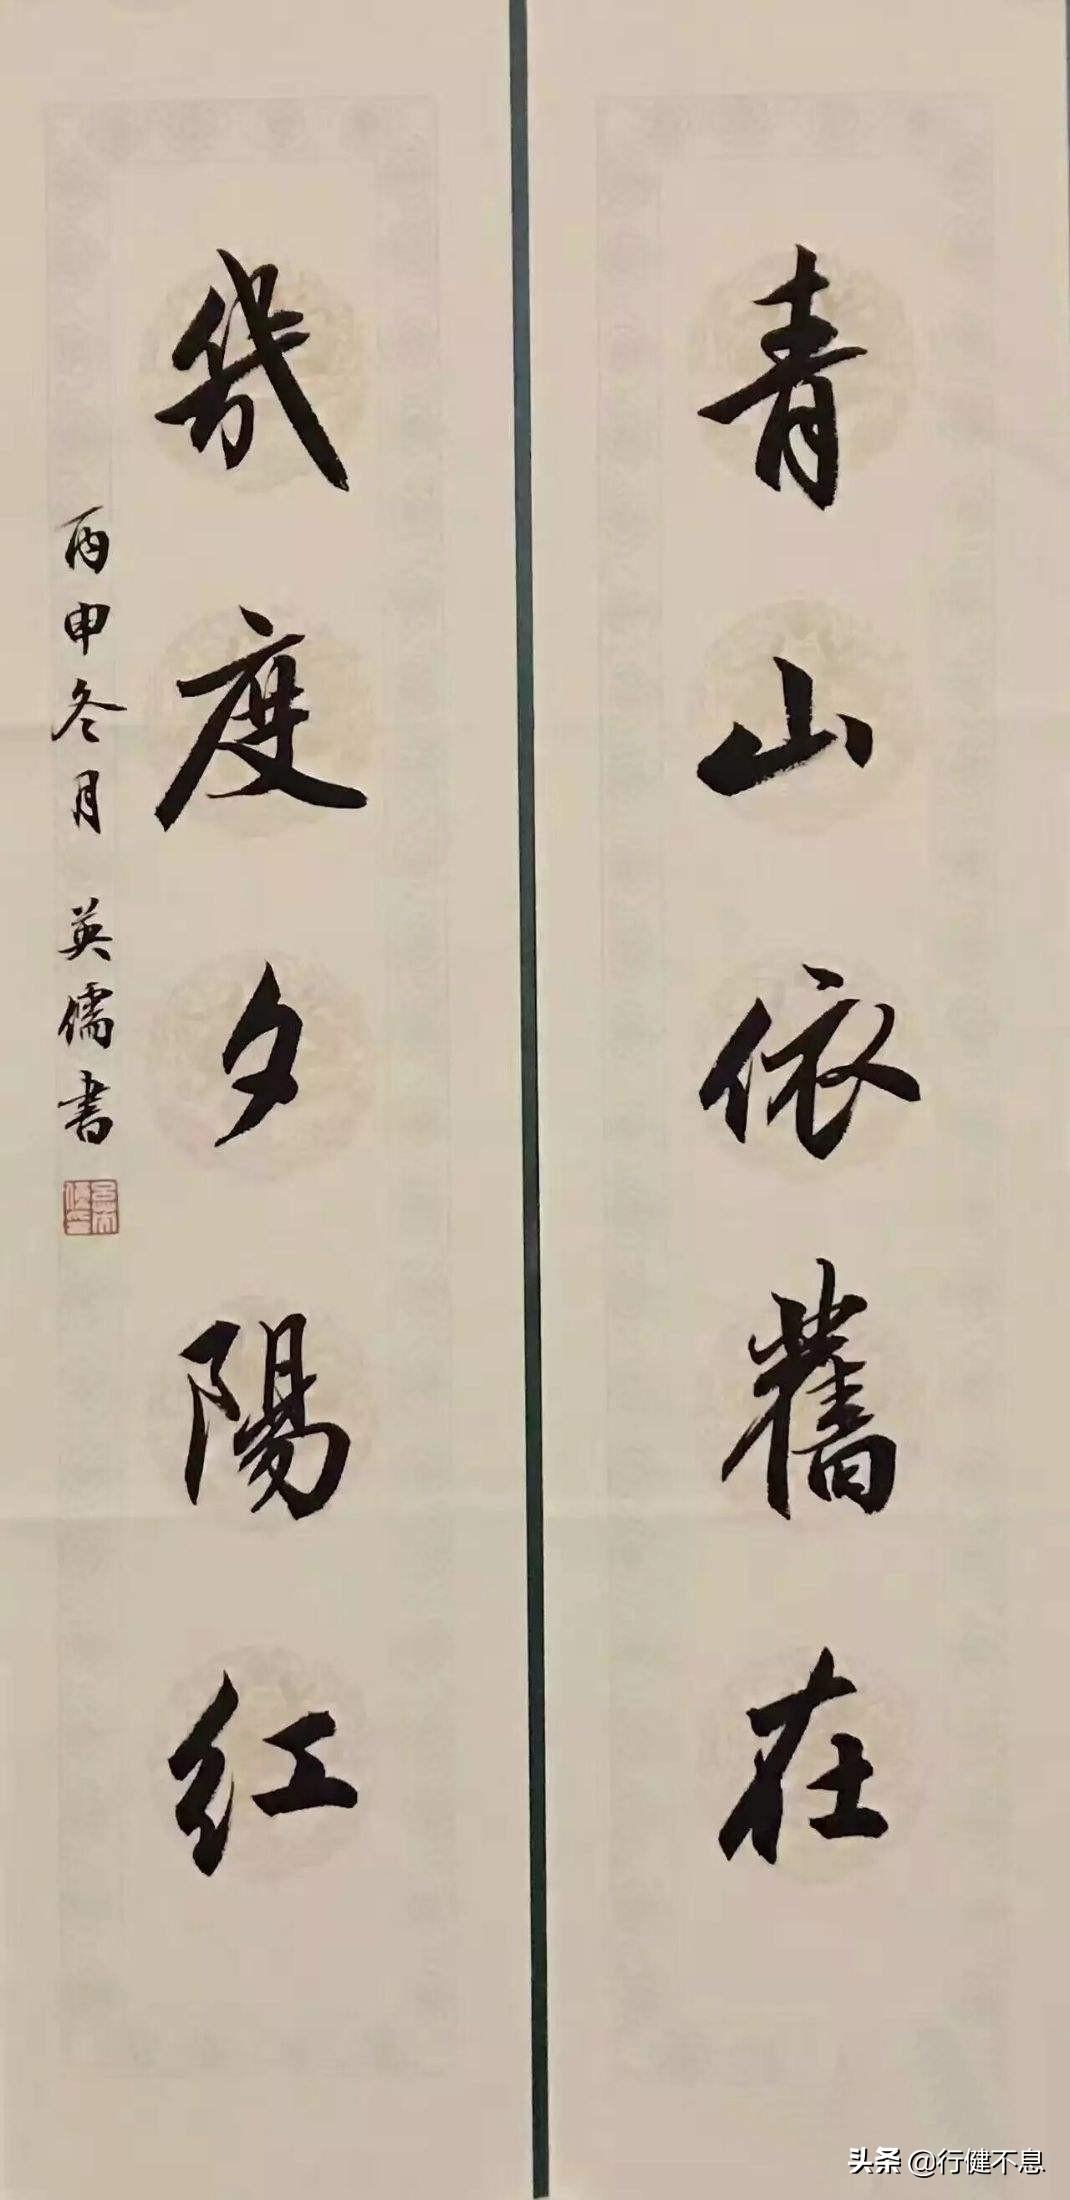 青山依舊在
幾度夕陽红
丙申冬月 英儒書
头条 @行健不息